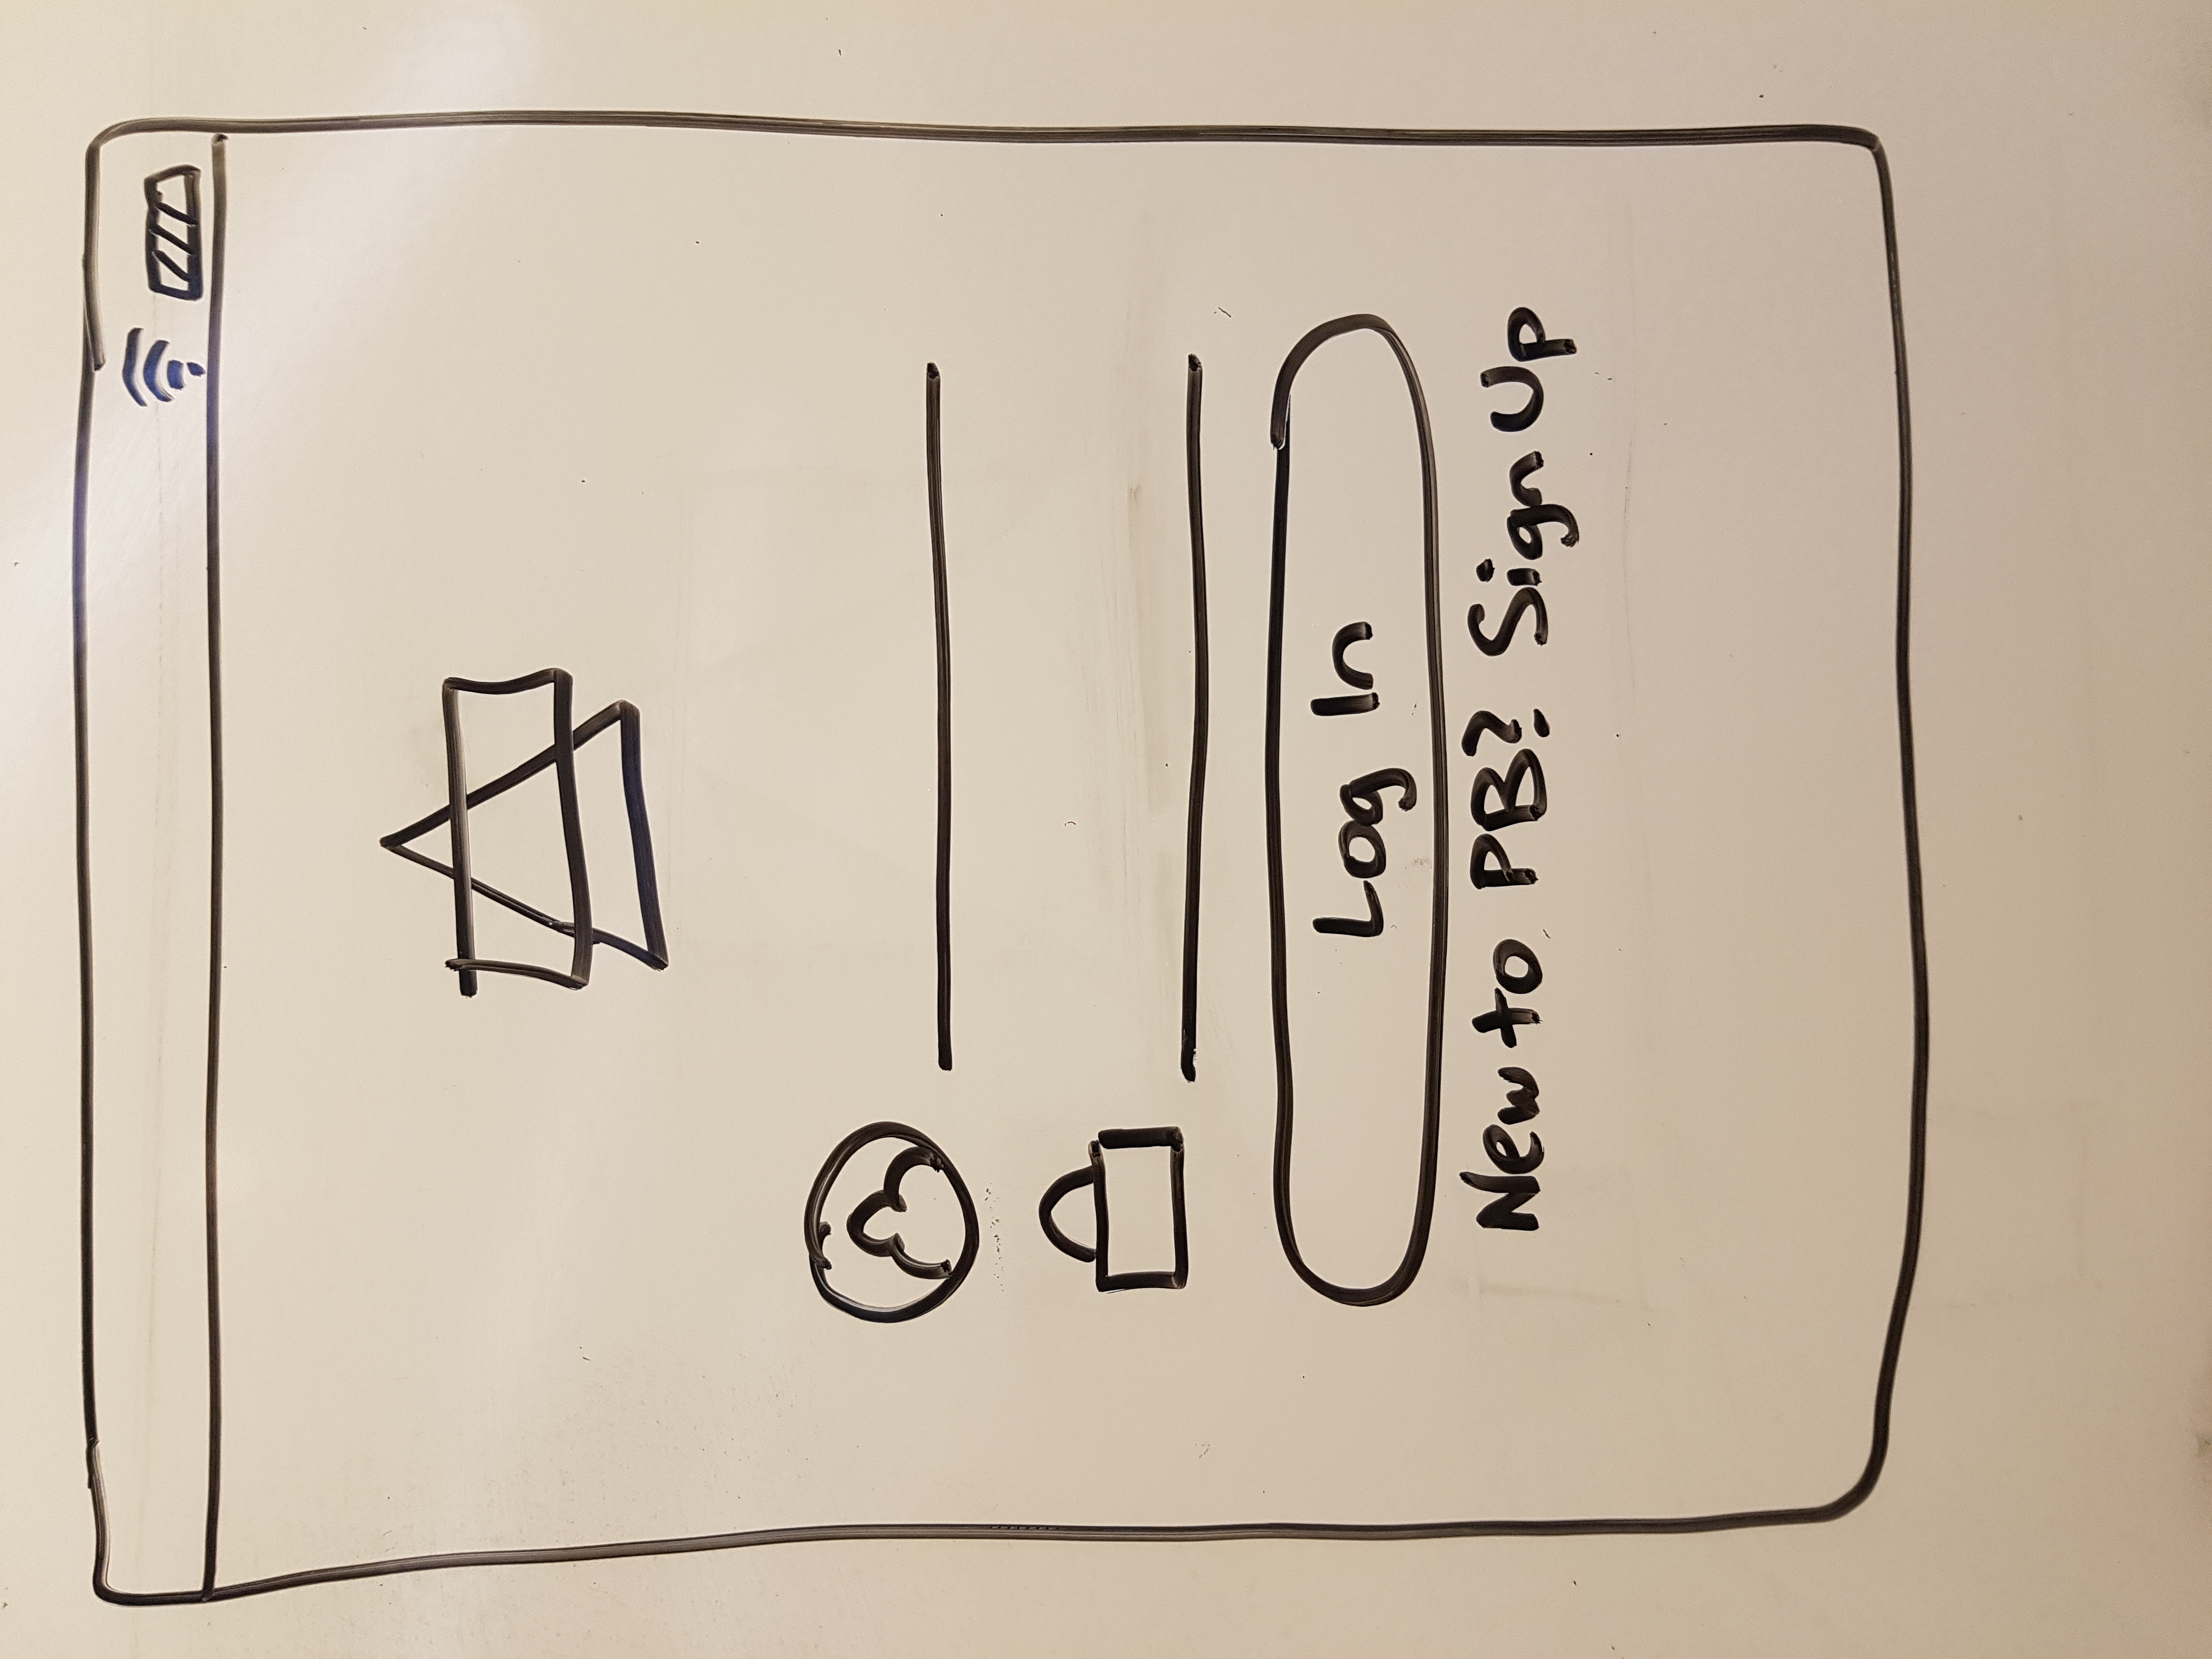 Log In
New to PB? Sign Up